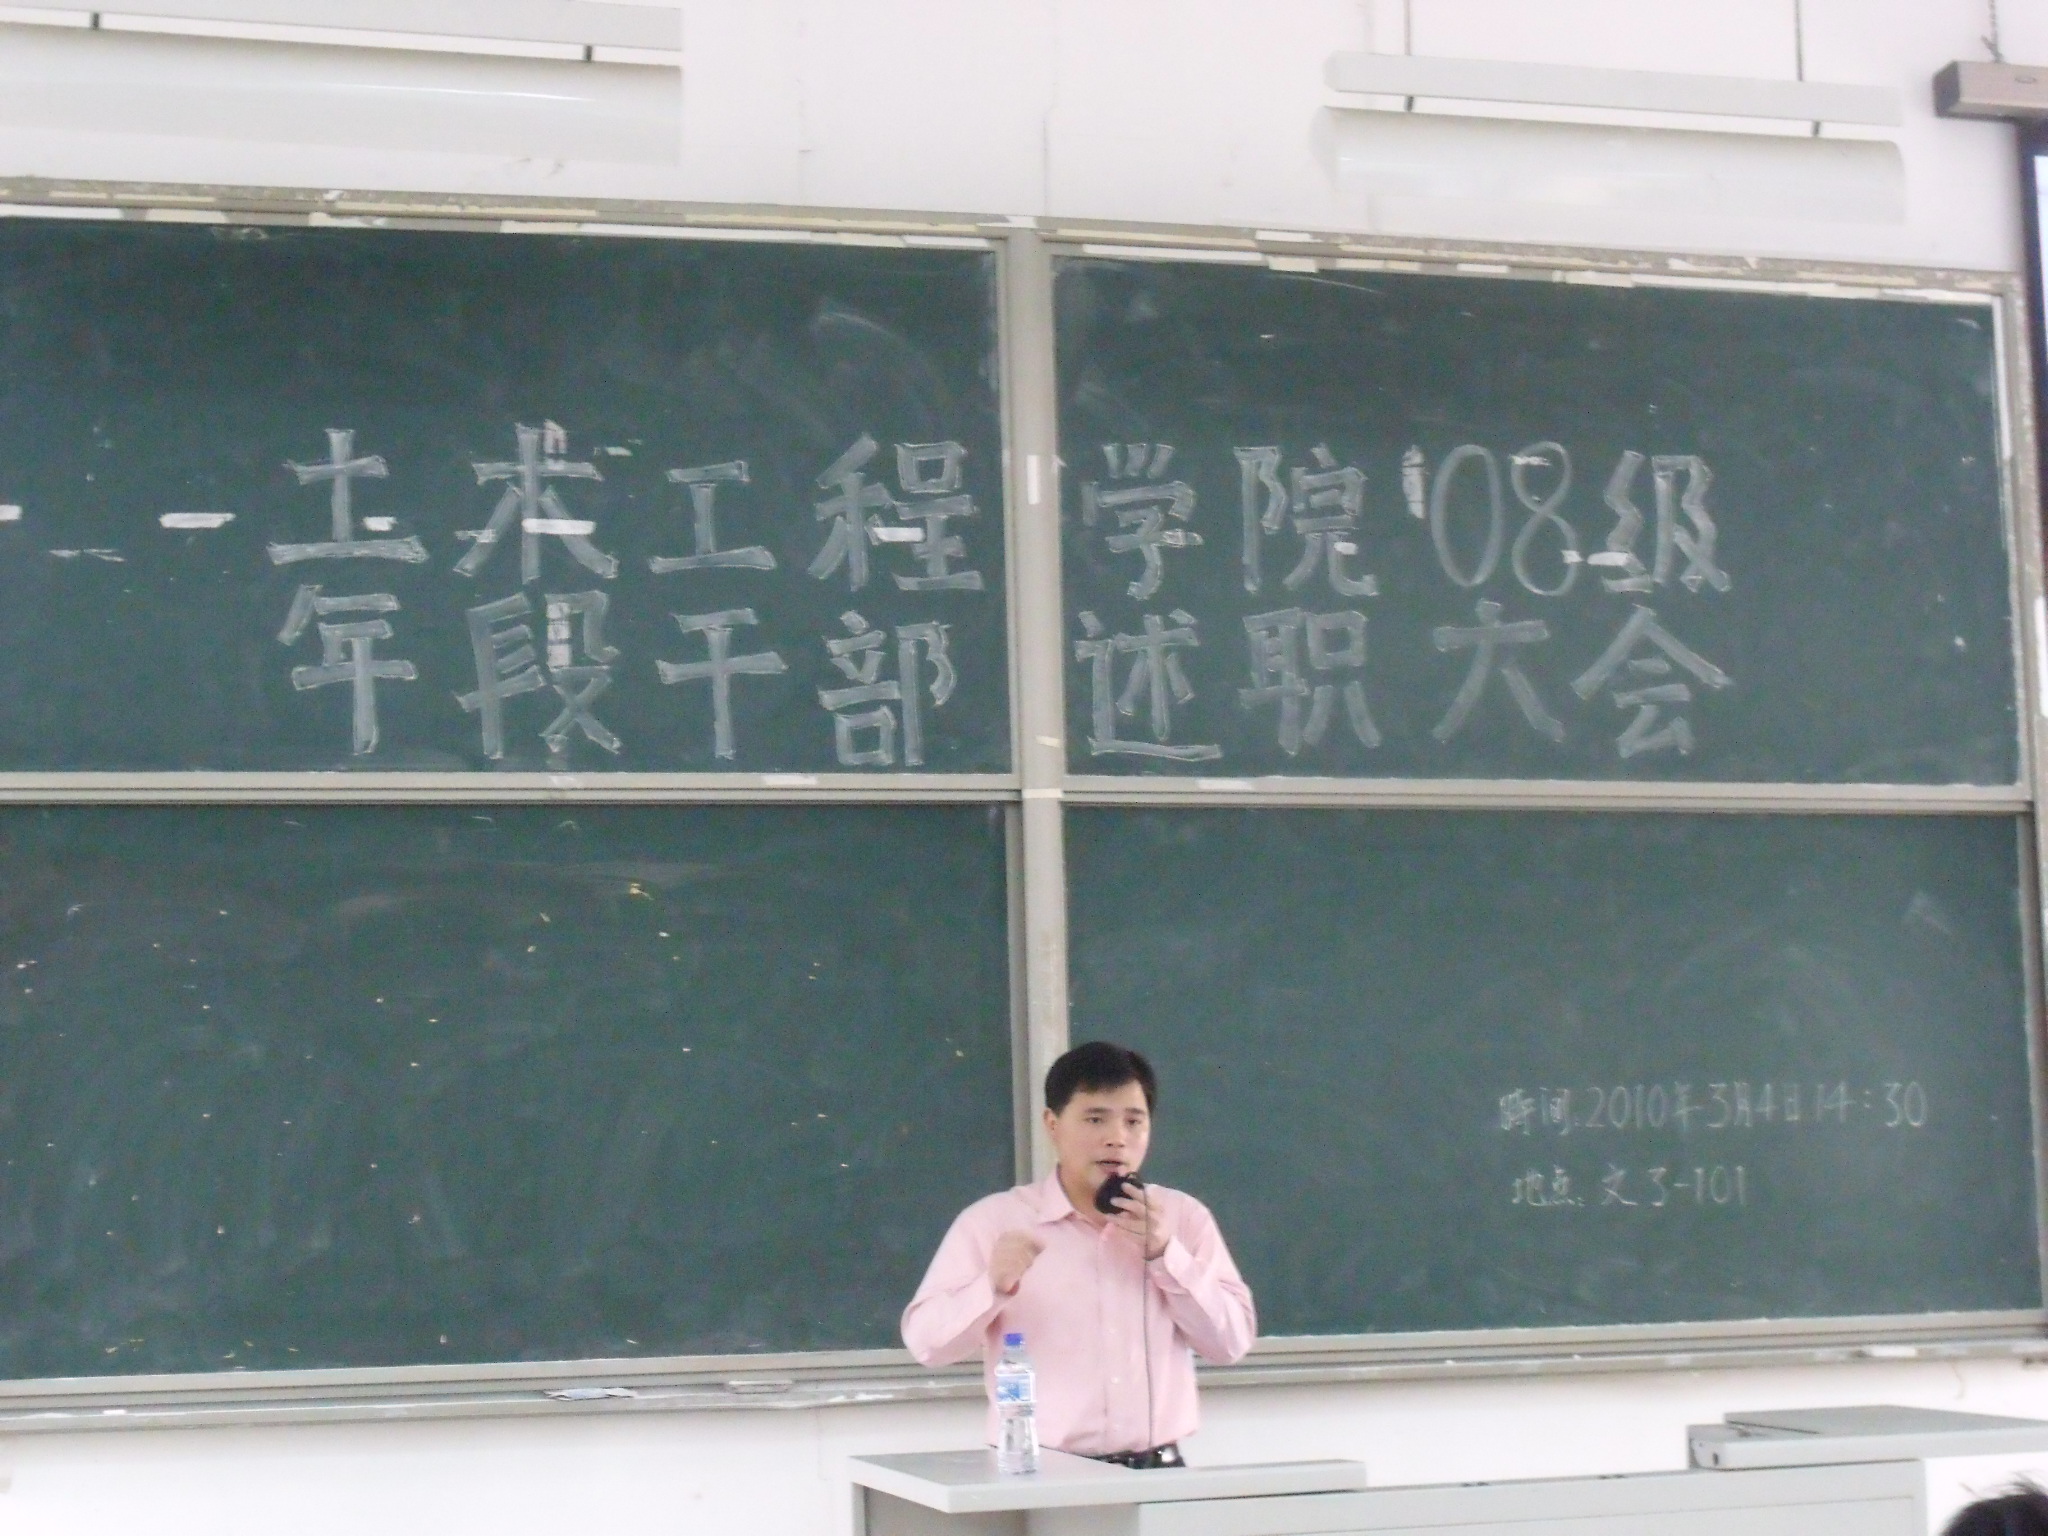 土木工程学院'08级
年段干部述职大会
时间:2010年3月4日14:30
地点:文3-101